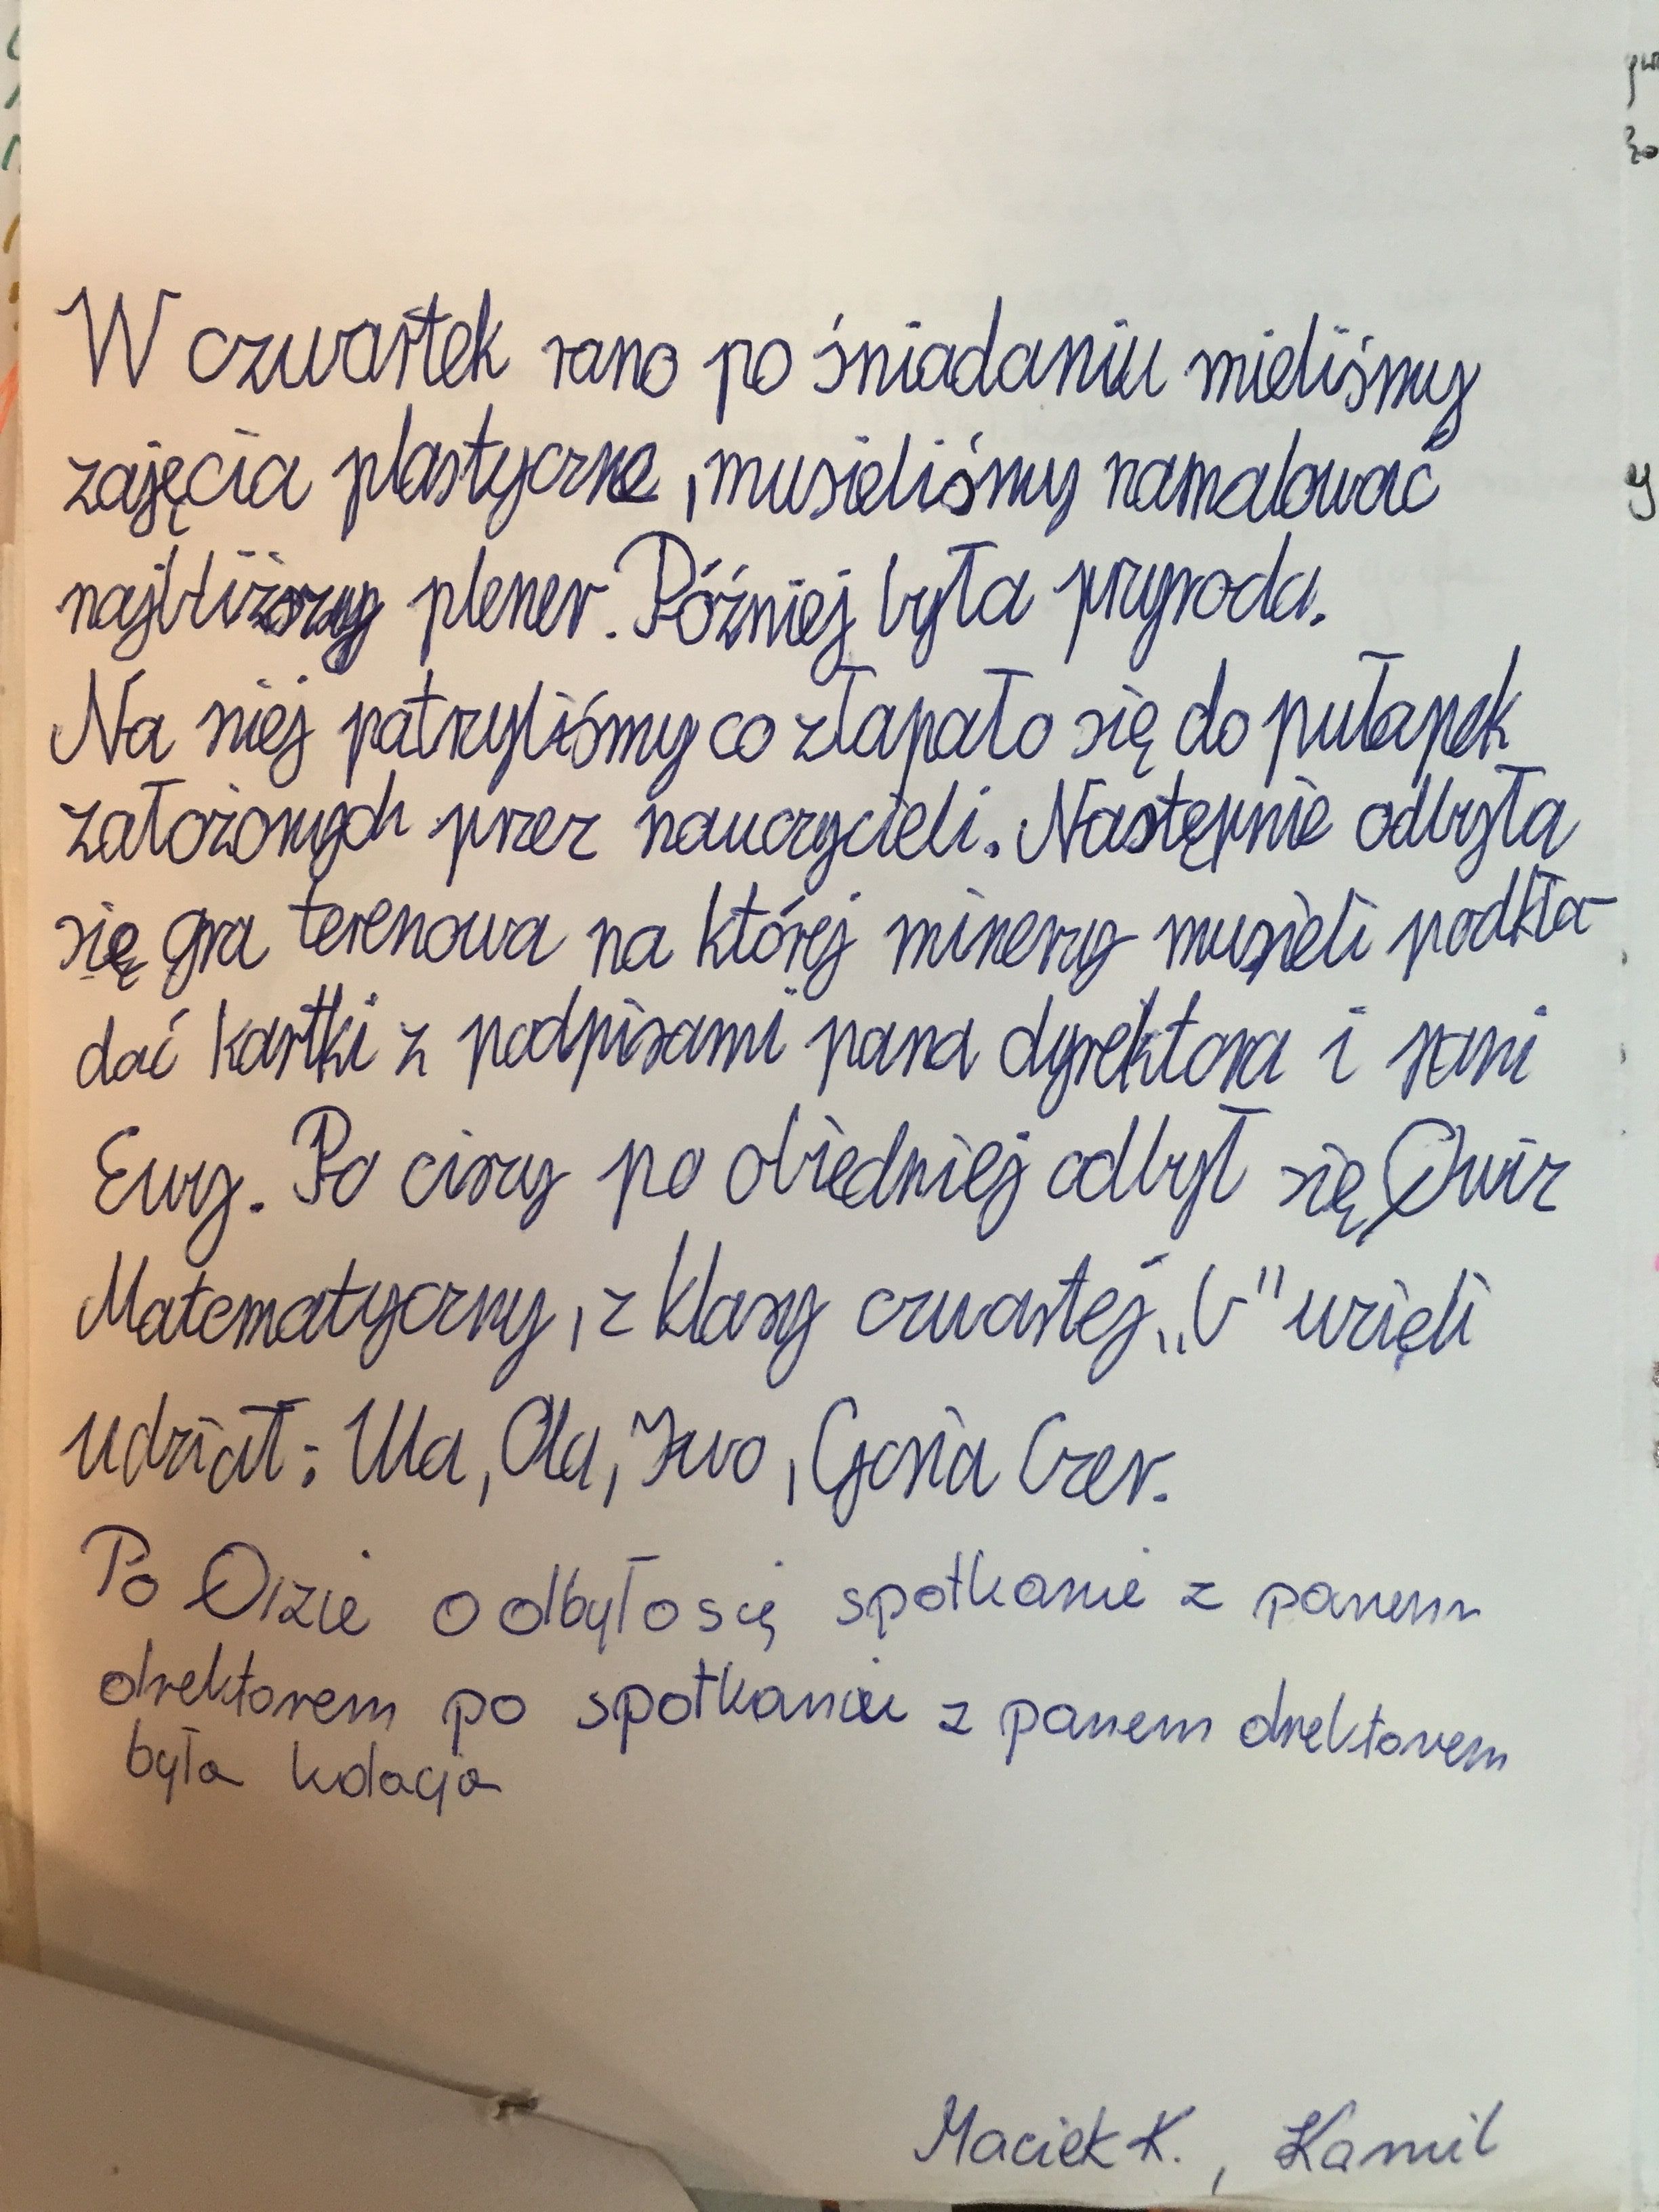 W czwartek rano po śniadaniu mieliśmy
zajęcia plastyczne, musieliśmy namalować
najbliższy plener. Później była przyroda.
Na niej patrzyliśmy co złapało się do pułapek
założonych przez nauczycieli. Następnie odbyła
się gra terenowa na której minerzy musieli podkła-
dać kartki z podpisami pana dyrektora i pani
Ewy. Po ciszy po obiedniej odbył się Qwiz
Matematyczny, z klasy czwartej „C" wzięli
udział: Ula, Ola, Iwo, Gosia Czer.
Po Qizie odbyłosię spotkanie z panem
drektorem po spotkaniu z panem drektorem
była kolacja
Maciek K., Kamil